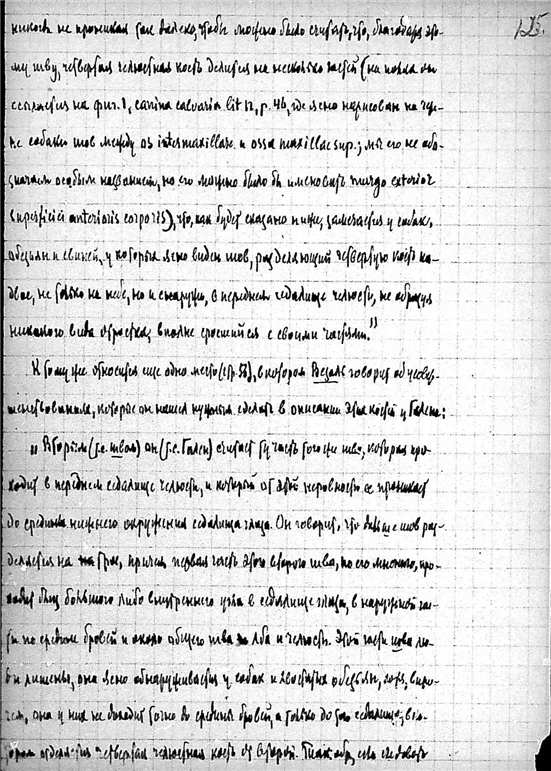 125.
никогда не проникая так далеко, чтобы можно было считать, что, благодаря это-
му шву, четвертая челюстная кость делится на несколько частей (на полях он
ссылается на фиг. 1, canina calvaria lit n, p. 46, где ясно нарисован на чере-
пе собаки шов между os intermaxillare и ossa maxillae sup.; мы его не обо-
значаем особым названием, но его можно было бы именовать margo exterior
superficiei anterioris corporis), что, как будет сказано ниже, замечается у собак,
обезьян и свиней, у которых ясно виден шов, разделяющий четвертую кость на-
двое, не только на небе, но и снаружи, в переднем седалище челюсти, не образуя
никакого вида отростка, вполне сросшийся с своими частями."
К тому же относится еще одно место (стр. 53), в котором Везаль говорит об усовер-
шенствованиях, которые он нашел нужным сделать в описании этих костей у Галена:
„Вторым (т.е. швом) он (т.е. Гален) считает ту часть того же шва, которая про-
ходит в переднем седалище челюсти, и который от этой неровности проникает
до средины нижнего окружения седалища глаза. Он говорит, что дальше шов раз-
деляется на трое, причем первая часть этого второго шва, по его мнению, про-
ходит близ большого либо внутреннего угла в седалище глаза, в наружной час-
ти по средине бровей и около общего шва лба и челюсти. Этой части шва лю-
ди лишены, она ясно обнаруживается у собак и хвостатых обезьян, хотя, впро-
чем, она у них не доходит точно до средины бровей, а только до того седалища, в ко-
тором отделяется четвертая челюстная кость от второй. Таким обр.